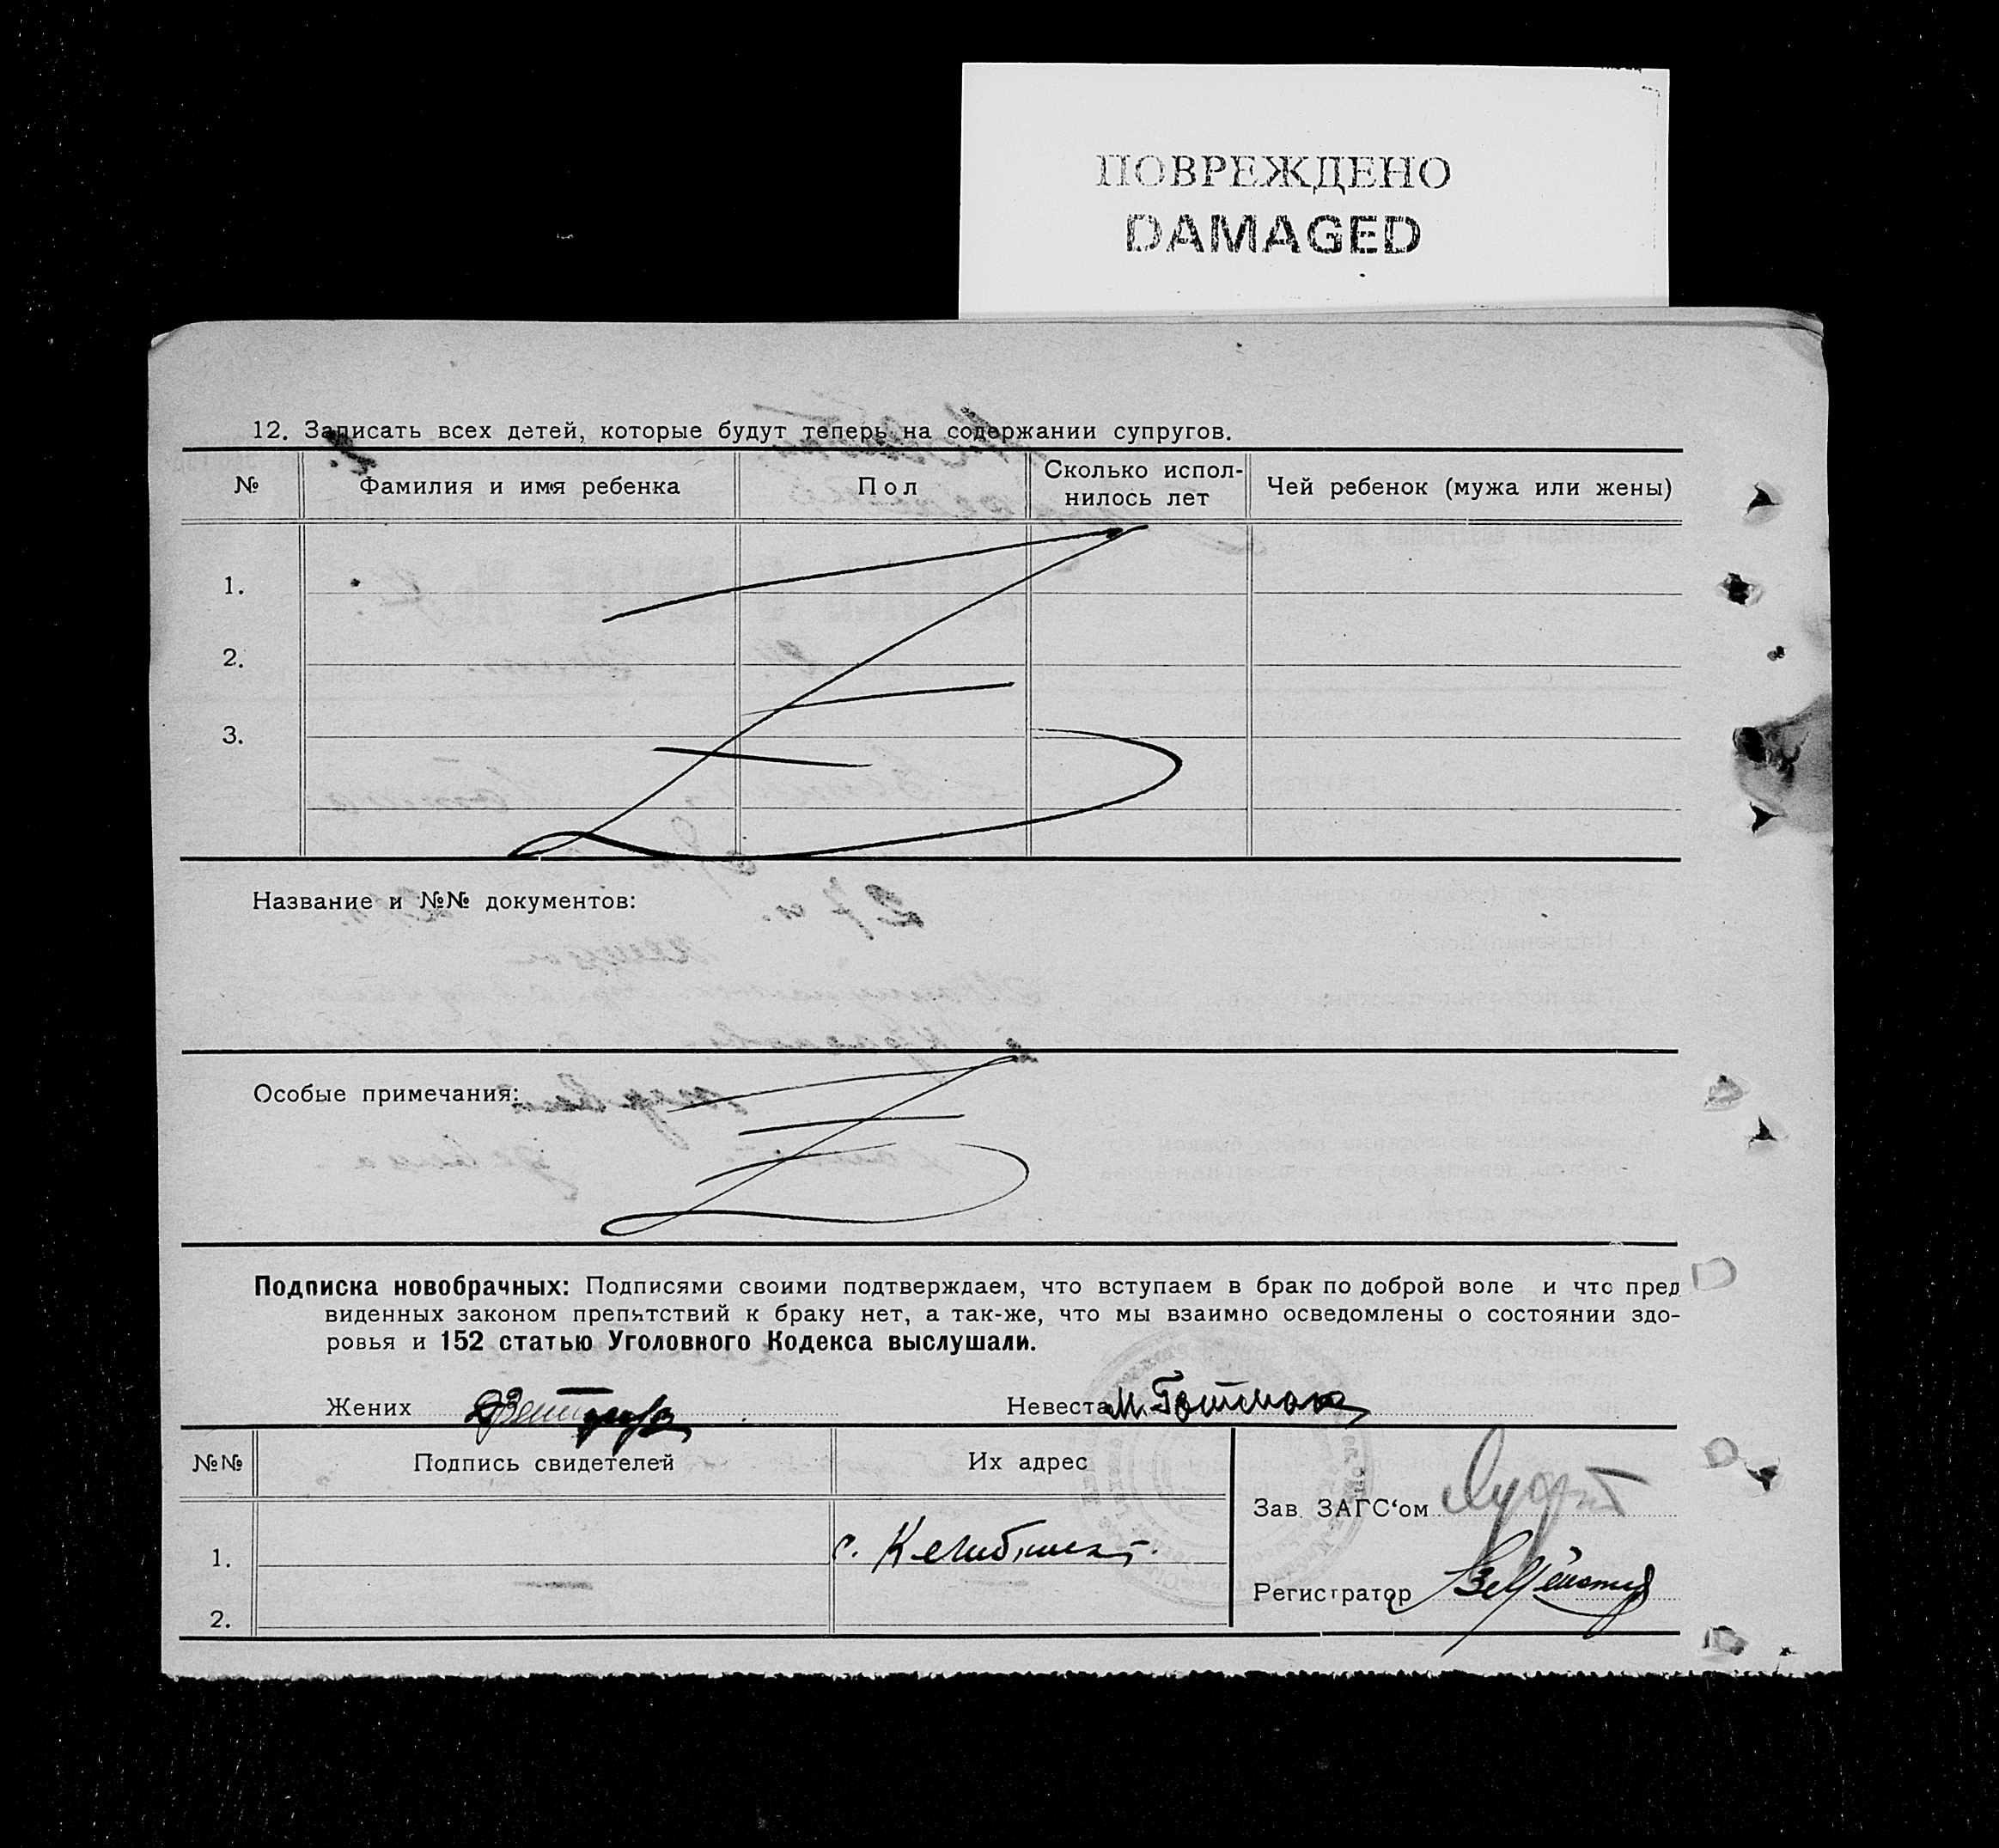 ПОВРЕЖДЕНО
DAMAGED
12. Записать всех детей, которые будут теперь на содержании супругов.
№ Фамилия и имя ребенка Пол Сколько испол-нилось лет Чей ребенок (мужа или жены)
1.
2.
3.
Название и №№ документов:
Особые примечания:
Подписка новобрачных: Подписями своими подтверждаем, что вступаем в брак по доброй воле и что пред
виденных законом препятствий к браку нет, а так-же, что мы взаимно осведомлены о состоянии здо-
ровья и 152 статью Уголовного Кодекса выслушали.
Жених Невеста М.
№№ Подпись свидетелей Их адрес
Зав. ЗАГС‘ом
1. с.
Регистратор
2.